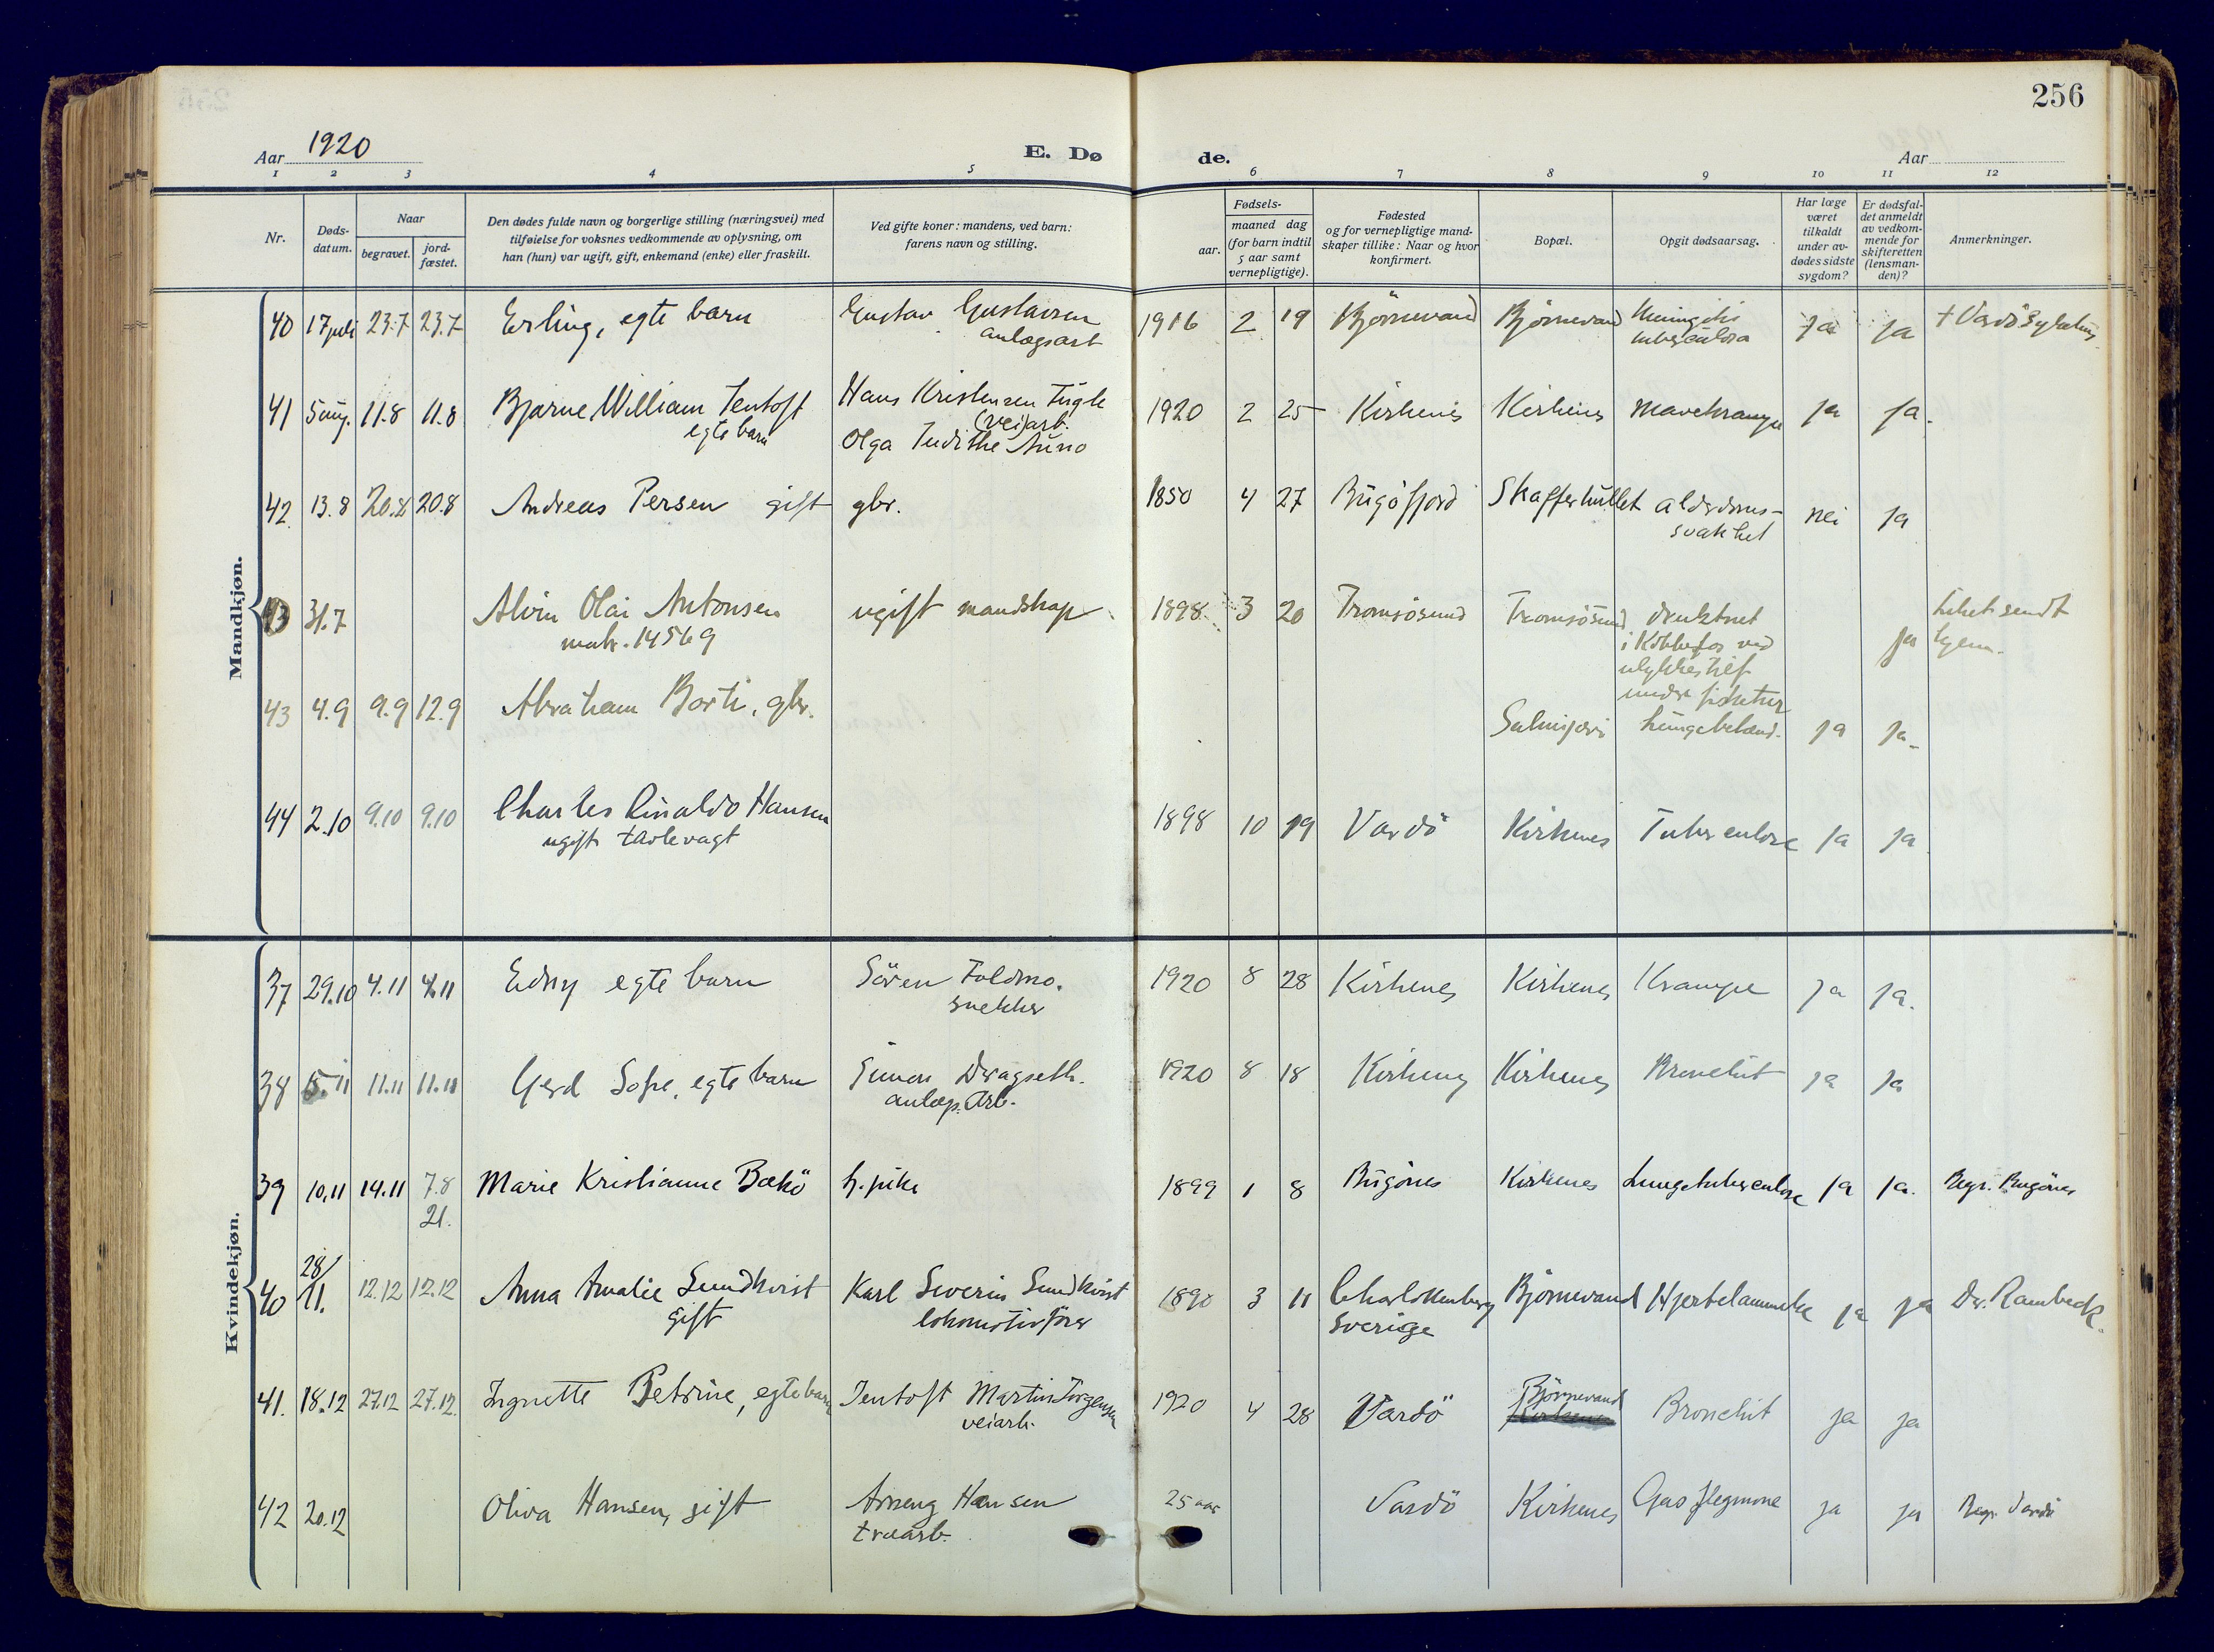 256
Aar 1920
E. Dø
de.
Aar
1 2 3 4 5 6 7 8 9 10 11 12
Nr.
Døds-
datum.
Naar
begravet.
jord-
fæstet.
Den dødes fulde navn og borgerlige stilling (næringsvei) med
tilføielse for voksnes vedkommende av oplysning, om
han (hun) var ugift, gift, enkemand (enke) eller fraskilt.
Ved gifte koner: mandens, ved barn:
farens navn og stilling.
Fødsels-
aar.
maaned dag
(for barn indtil
5 aar samt
vernepligtige).
Fødested
og for vernepligtige mand-
skaper tillike: Naar og hvor
konfirmert.
Bopæl.
Opgit dødsaarsag.
Har læge
været
tilkaldt
under av-
dødes sidste
sygdom?
Er dødsfal-
det anmeldt
av vedkom-
mende for
skifteretten
(lensman-
den)?
Anmerkninger.
Mandkjøn.
40 17 juli 23.7 23.7 Erling, egte barn Gustav Gustavsen 1916 2 19 Bjørnevand Bjørnevand ja ja † Vardö Sykehus
anlægsarb
41 5 aug. 11.8 11.8 Bjarne William Jentoft Hans Kristensen 1920 2 25 Kirkenes Kirkenes mavekrampe ja ja.
egte barn
(vei)arb.
Olga
42. 13.8 20.8 20.8 Andreas Persen gift gbr. 1850 4 27 Bugöfjord Skafferhullet alderdoms-
svakhet nei ja
43 31.7 Alvin Olai Antonsen ugift mandskap 1898 3 20 Tromsösund Tromsösund druknet
matr. 14569
i Kobbefos ved
ulykkestilf
under fisketur
ja Liket sendt
hjem.
43 4.9 9.9 12.9 Abraham gbr. Salmijervi Lungebetænd. ja ja.
44 2.10 9.10 9.10 Charles Rinaldo Hansen 1898 10 19 Vardö Kirkenes Tuberculose ja ja
ugift tavlevagt
Kvindekjøn.
37 29.10 4.11 4.11 Edny egte barn Sören Foldmo. 1920 8 28 Kirkenes Kirkenes Krampe ja ja.
snekker
38 5.11 11.11 11.11 Gerd Sofie, egte barn Simon Dragseth. 1920 8 18 Kirkenes Kirkenes Bronchit ja ja
anlægs. Arb.
39 10.11 14.11 7.8 Marie Kristianne Bækö h. pike 1899 1 8 Bugönes Kirkenes Lungetuberculose ja ja. Begr. Bugönes
21.
40 28/ 12.12 12.12 Anna Amalie Sundkvist Karl Severin Sundkvist 1890 3 11 Charlottenberg Bjørnevand Hjertelammelse ja ja Dr. Rambeck.
11.
gift lokomotivförer Sverige
41. 18.12 27.12 27.12. Ingnette Petrine, egte barn Jentoft Martin Jörgensen 1920 4 28 Vardö Bjørnevand Bronchit ja ja
veiarb.
42 20.12 Oliva Hansen, gift Hansen 25 aar Vardö Kirkenes Gasflegmone ja ja Begr. Vardö
træarb.